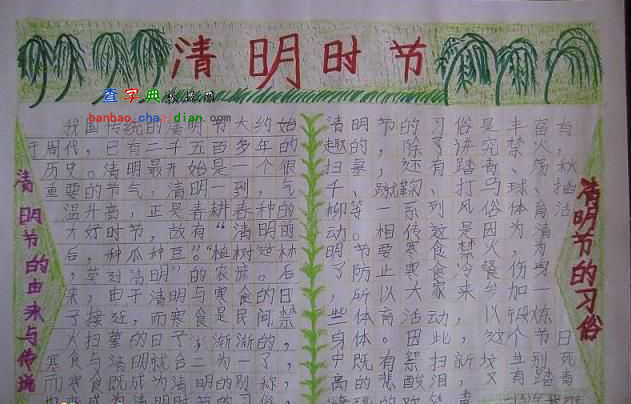 清明时节
查字典
banbao.cha dian.com
清明节的由来与传说
我国传统的清明节大约始
于周代，已有二千五百多年的
历史。清明最开始是一个很
重要的节气，清明一到，气
温升高，正是春耕春种的
大好时节，故有“清明前
后，种瓜种豆。”“植树造林
，莫过清明”的农谚。后
来，由于清明与寒食的日
子接近，而寒食是民间禁
火扫墓的日子，渐渐的，
寒食与清明就合二为一了，
而寒食既成为清明的别称，
也变成为清明时节的习俗，
清明节的习俗是丰富有
趣的，除了讲究禁火，
扫墓，还有踏青、荡秋
千、蹴鞠、打马球、插
柳等一系列风俗体育活
动。相传这是因为清
明节要寒食禁火，为
了防止寒食冷餐伤身
，所以大家来参加一
些体育活动，以锻炼
身体。因此，这个节日
中既有祭扫新坟生别死
离的悲酸泪，又有踏青
清明节的习俗